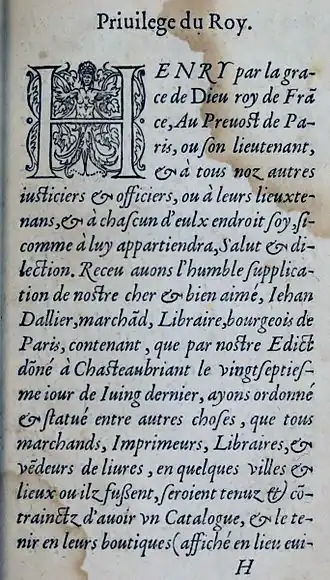 Priuilege du Roy.
HENRY par la gra
ce de Dieu roy de Frã
ce, Au Preuost de Pa-
ris, ou son lieutenant,
& à tous noz autres
iusticiers & officiers, ou à leurs lieuxte-
nans, & à chascun d'eulx endroit soy, si-
comme à luy appartiendra, Salut & di-
lection. Receu auons l'humble supplica-
tion de nostre cher & bien aimé, Iehan
Dallier, marchãd, Libraire, bourgeois de
Paris, contenant, que par nostre Edict
dõné à Chasteaubriant le vingtsepties-
me iour de Iuing dernier, ayons ordonné
& statué entre autres choses, que tous
marchands, Imprimeurs, Libraires, &
vẽdeurs de liures, en quelques villes &
lieux ou ilz fussent, seroient tenuz & cõ-
trainctz d'auoir vn Catalogue, & le te-
nir en leurs boutiques (affiché en lieu eui-
H